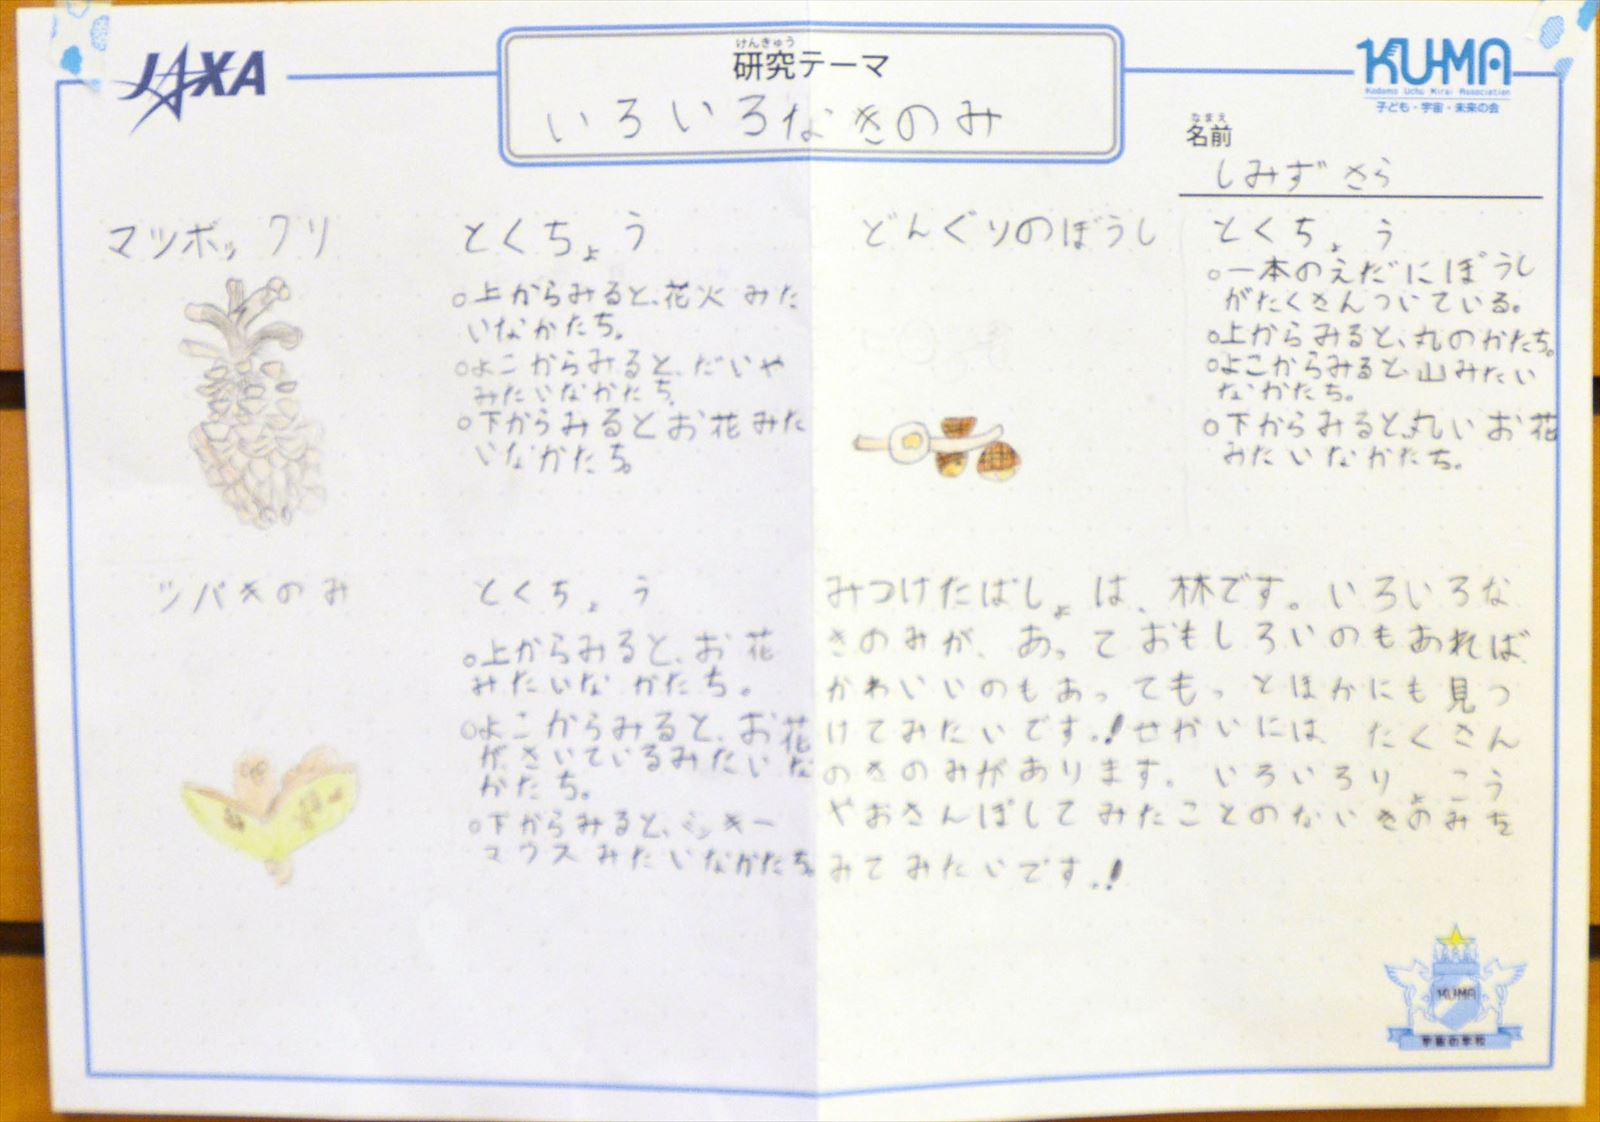 JAXA
けんきゅう
研究テーマ
いろいろなきのみ
KUMA
Kodomo Uchu Mirai Association
子ども・宇宙・未来の会
なまえ
名前
しみずさら
マツボックリ
とくちょう
○上からみると、花火みた
いなかたち。
○よこからみると、だいや
みたいなかたち。
○下からみるとお花みた
いなかたち。
どんぐりのぼうし
とくちょう
○一本のえだにぼうし
がたくさんついている。
○上からみると、丸のかたち。
○よこからみると、山みたい
なかたち。
○下からみると、丸いお花
みたいなかたち。
ツバキのみ
とくちょう
○上からみると、お花
みたいなかたち。
○よこからみると、お花
がさいているみたいな
かたち。
○下からみると、ミッキー
マウスみたいなかたち。
みつけたばしょは、林です。いろいろな
きのみが、あっておもしろいのもあれば、
かわいいのもあってもっとほかにも見つ
けてみたいです。!せかいには、たくさん
のきのみがあります。いろいろりょこう
やおさんぽしてみたことのないきのみを
みてみたいです。!
KUMA
宇宙の学校